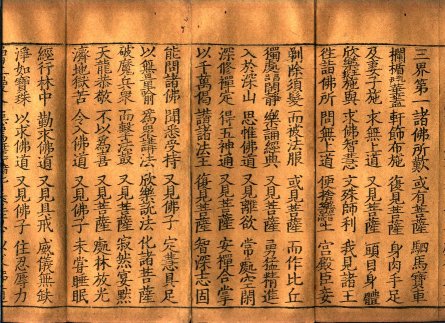 三界第一 諸佛所歎 或有菩薩 駟馬寶車
欄楯華蓋 軒飾布施 復見菩薩 身肉手足
及妻子施 求無上道 又見菩薩 頭目身體
欣樂施與 求佛智慧 文殊師利 我見諸王
往詣佛所 問無上道 便捨樂土 宮殿臣妾
剃除鬚髮 而被法服 或見菩薩 而作比丘
獨處閒靜 樂誦經典 又見菩薩 勇猛精進
入於深山 思惟佛道 又見離欲 常處空閒
深修禪定 得五神通 又見菩薩 安禪合掌
以千萬偈 讚諸法王 復見菩薩 智深志固
能問諸佛 聞悉受持 又見佛子 定慧具足
以無量喻 為衆講法 欣樂說法 化諸菩薩
破魔兵衆 而擊法鼓 又見菩薩 寂然宴默
天龍恭敬 不以為喜 又見菩薩 處林放光
濟地獄苦 令入佛道 又見佛子 未嘗睡眠
經行林中 勤求佛道 又見具戒 威儀無缺
淨如寶珠 以求佛道 又見佛子 住忍辱力